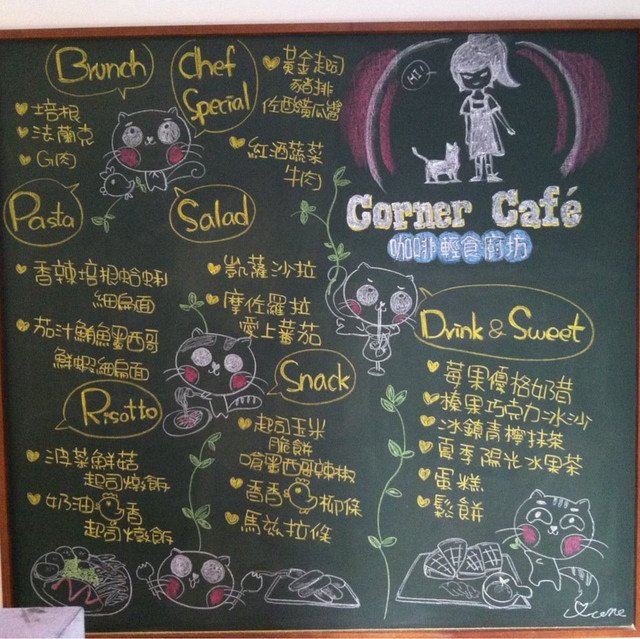 Brunch
培根
法蘭克
G肉
Chef
Special
黃金起司
豬排
佐酸黃瓜醬
紅酒蔬菜
牛肉
HI!
Corner Café
咖啡輕食廚坊
Pasta
香辣培根蛤蜊
細扁面
茄汁鮪魚墨西哥
鮮蝦細扁面
Salad
凱薩沙拉
摩佐羅拉
愛上蕃茄
Risotto
波菜鮮菇
起司燉飯
奶油香
起司燉飯
Snack
起司玉米
脆餅
嗆墨西哥辣椒
香香柳條
馬茲拉條
Drink & Sweet
莓果優格奶昔
蘋果巧克力冰沙
冰鎮青檸抹茶
夏季陽光水果茶
蛋糕
鬆餅
Irene